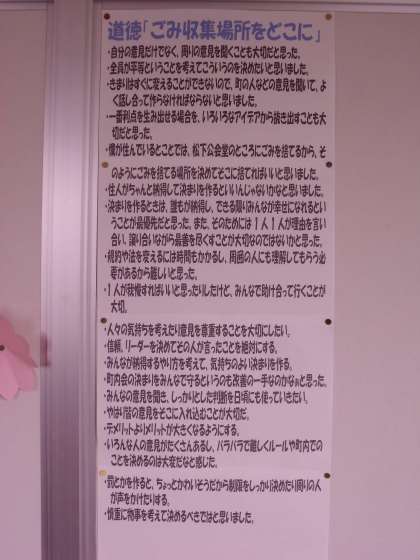 道徳「ごみ収集場所をどこに」
・自分の意見だけでなく、周りの意見を聞くことも大切だと思った。
・全員が平等ということを考えてこういうのを決めたいと思いました。
・きまりはすぐに変えることができないので、町の人などの意見を聞いて、よ
く話し合って作らなければならないと思いました。
・一番利点を生み出せる場合を、いろいろなアイデアから抜き出すことも大
切だと思った。
・僕が住んでいるとことでは、松下公会堂のところにごみを捨てるから、そ
のようにごみを捨てる場所を決めてそこに捨てればいいと思いました。
・住人がちゃんと納得して決まりを作るといいんじゃないかなと思いました。
・決まりを作るときは、誰もが納得し、できる限りみんなが幸せになれるとい
うことが最優先だと思った。また、そのためには1人1人が理由を言い
合い、譲り合いながら最善を尽くすことが大切なのではないかと思った。
・規約や法を変えるには時間もかかるし、周囲の人にも理解してもらう必
要があるから難しいと思った。
・1人が我慢すればいいと思ったりしたけど、みんなで助け合って行くことが
大切。
・人々の気持ちを考えたり意見を尊重することを大切にしたい。
・信頼、リーダーを決めてその人が言ったことを絶対にする。
・みんなが納得するやり方を考えて、気持ちのよい決まりを作る。
・町内会の決まりをみんなで守るというのも改善の一手なのかなぁと思った。
・みんなの意見を聞き、しっかりとした判断を日頃にも使っていきたい。
・やはり皆の意見をそこに入れ込むことが大切だ。
・デメリットよりメリットが大きくなるようにする。
・いろんな人の意見がたくさんあるし、バラバラで難しくルールや町内での
ことを決めるのは大変だなと感じた。
・罰とかを作ると、ちょっとかわいそうだから制限をしっかり決めたり周りの人
が声をかけたりする。
・慎重に物事を考えて決めるべきではと思いました。